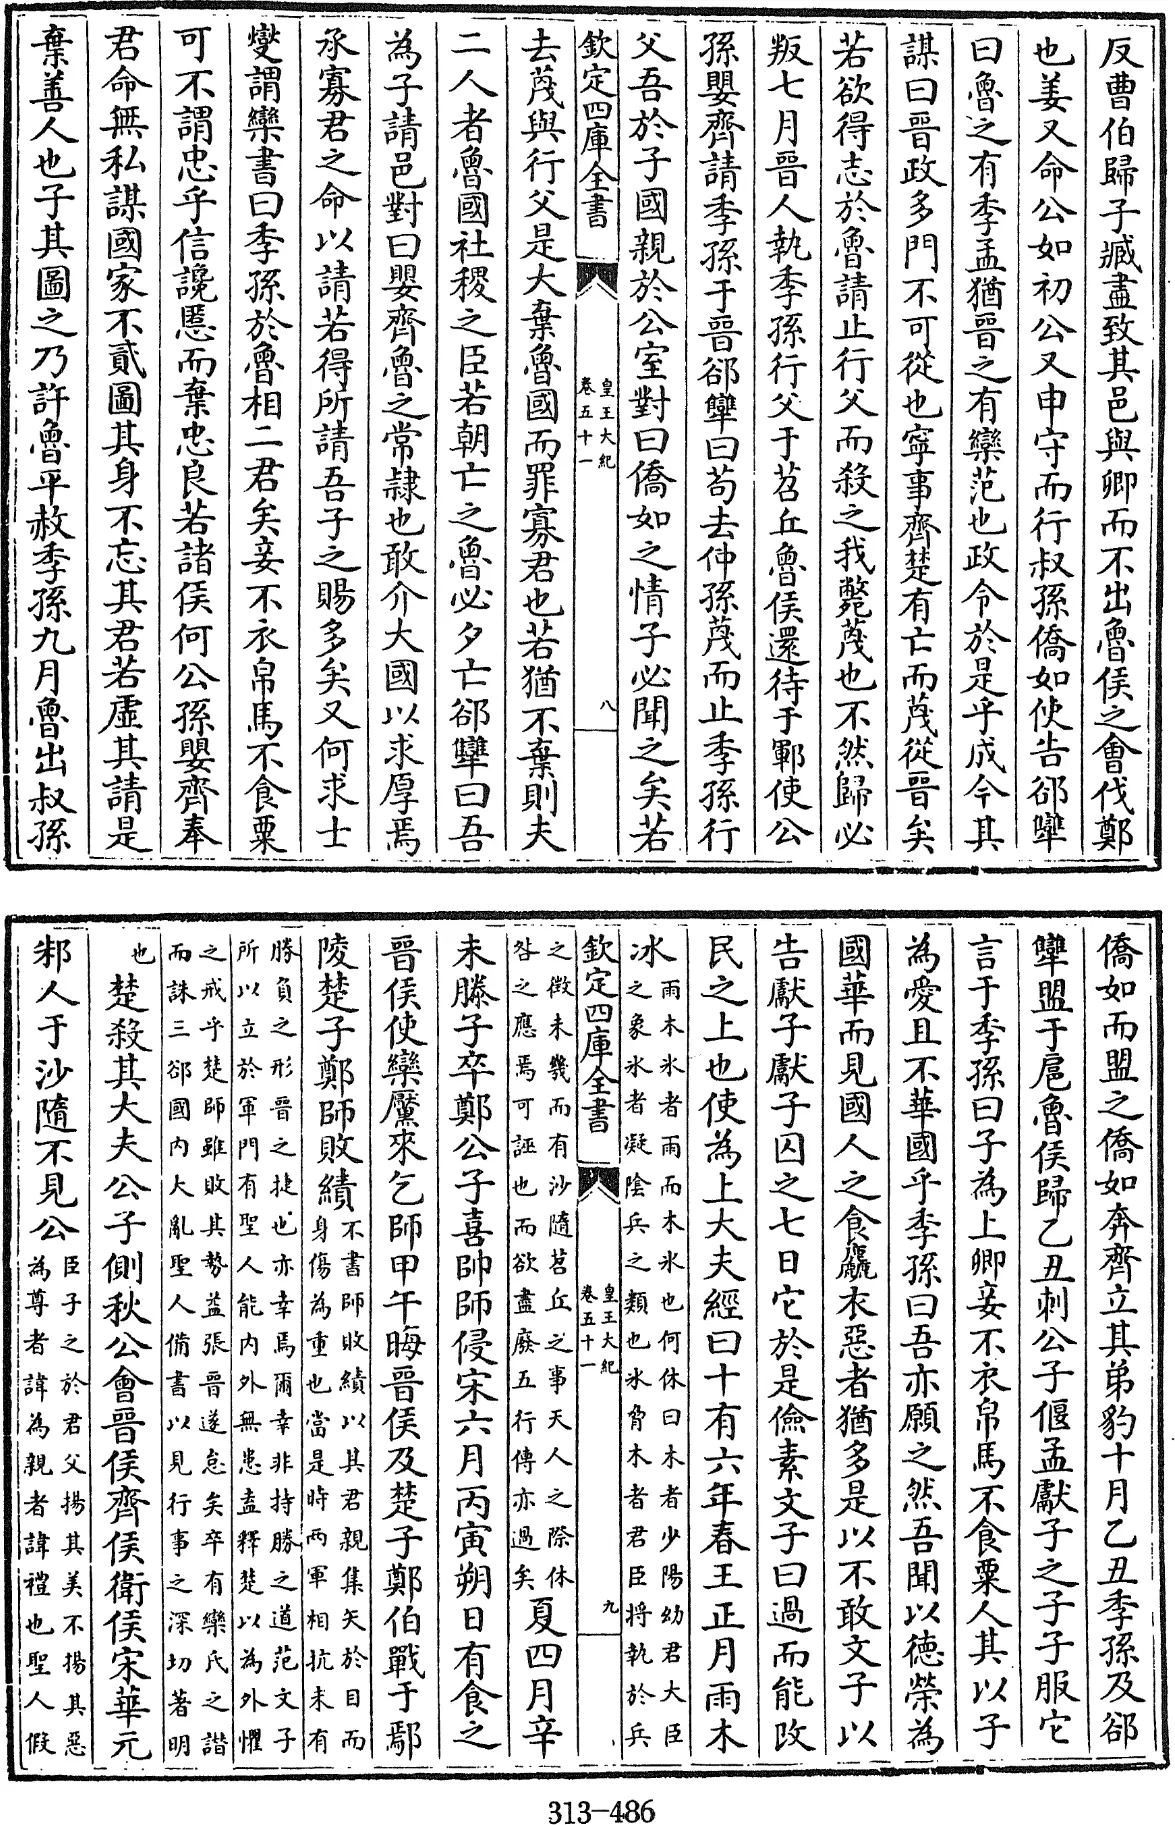 反曹伯歸子臧盡致其邑與卿而不出魯侯之會伐鄭
也姜又命公如初公又申守而行叔孫僑如使告郤犫
曰魯之有季孟猶晉之有欒范也政令於是乎成今其
謀曰晉政多門不可從也寧事齊楚有亡而蔑從晉矣
若欲得志於魯請止行父而殺之我斃蔑也不然歸必
叛七月晉人執季孫行父于苕丘魯侯還待于鄆使公
孫嬰齊請季孫于晉郤犫曰苟去仲孫蔑而止季孫行
父吾於子國親於公室對曰僑如之情子必聞之矣若
欽定四庫全書
皇王大紀
卷五十一
八
去蔑與行父是大棄魯國而罪寡君也若猶不棄則夫
二人者魯國社稷之臣若朝亡之魯必夕亡郤犫曰吾
為子請邑對曰嬰齊魯之常隸也敢介大國以求厚焉
承寡君之命以請若得所請吾子之賜多矣又何求士
燮謂欒書曰季孫於魯相二君矣妾不衣帛馬不食粟
可不謂忠乎信讒慝而棄忠良若諸侯何公孫嬰齊奉
君命無私謀國家不貳圖其身不忘其君若虛其請是
棄善人也子其圖之乃許魯平赦季孫九月魯出叔孫
僑如而盟之僑如奔齊立其弟豹十月乙丑季孫及郤
犫盟于扈魯侯歸乙丑刺公子偃孟獻子之子子服它
言于季孫曰子為上卿妾不衣帛馬不食粟人其以子
為愛且不華國乎季孫曰吾亦願之然吾聞以德榮為
國華而見國人之食麤衣惡者猶多是以不敢文子以
告獻子獻子囚之七日它於是儉素文子曰過而能改
民之上也使為上大夫經曰十有六年春王正月雨木
冰
雨木氷者雨而木氷也何休曰木者少陽幼君大臣
之象氷者凝陰兵之類也氷脅木者君臣将執於兵
欽定四庫全書
皇王大紀
卷五十一
九
之徴未幾而有沙隨苕丘之事天人之際休
咎之應焉可誣也而欲盡廢五行傳亦過矣
夏四月辛
未滕子卒鄭公子喜帥師侵宋六月丙寅朔日有食之
晉侯使欒黶來乞師甲午晦晉侯及楚子鄭伯戰于鄢
陵楚子鄭師敗績
不書師敗績以其君親集矢於目而
身傷為重也當是時兩軍相抗未有
勝負之形晉之捷也亦幸焉爾幸非持勝之道范文子
所以立於軍門有聖人能内外無患盍釋楚以為外懼
之戒乎楚師雖敗其勢益張晉遂怠矣卒有欒氏之譖
而誅三郤國内大亂聖人備書以見行事之深切著明
也
楚殺其大夫公子側秋公會晉侯齊侯衛侯宋華元
邾人于沙隨不見公
臣子之於君父揚其美不揚其惡
為尊者諱為親者諱禮也聖人假
313-486